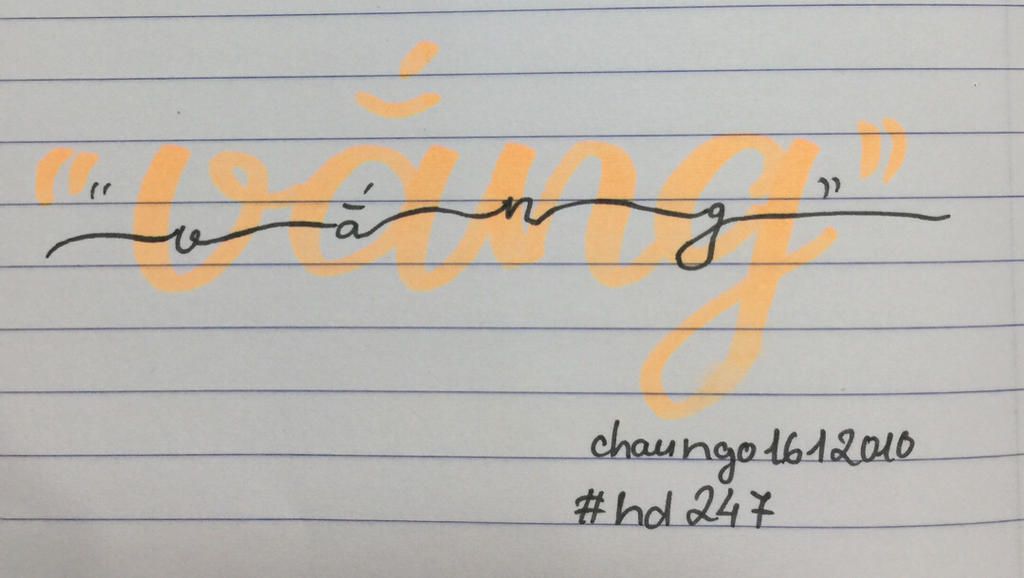 “vắng”
“vắng”
chaungo1612010
#hd 247